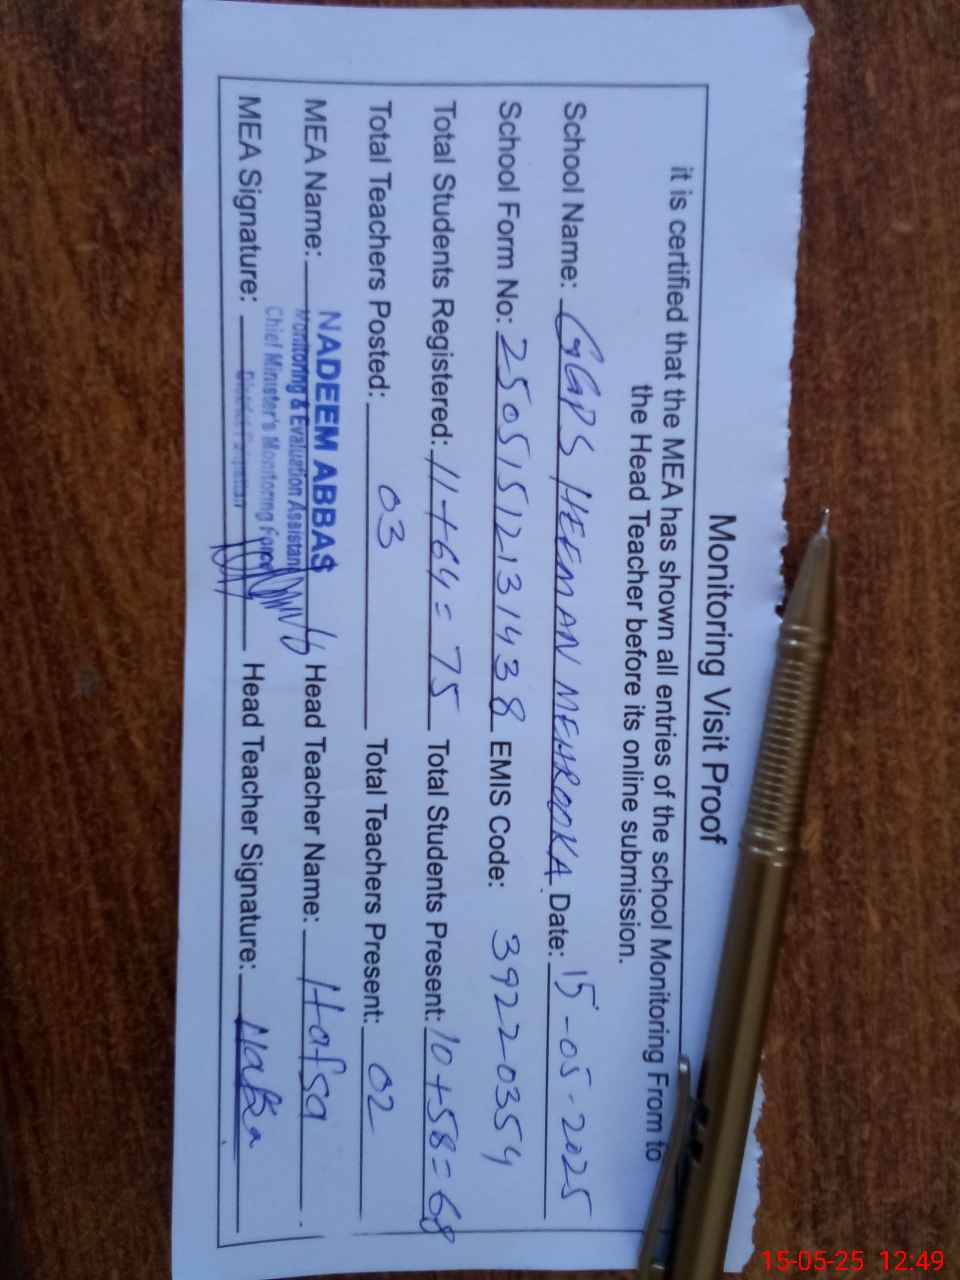 Monitoring Visit Proof
it is certified that the MEA has shown all entries of the school Monitoring From to
the Head Teacher before its online submission.
School Name: GGPS HEEMAN MEHROOKA Date: 15-05-2025
School Form No: 25051512131438 EMIS Code: 39220354
Total Students Registered: 11+64=75 Total Students Present: 10+58=68
Total Teachers Posted: 03 Total Teachers Present: 02
MEA Name: NADEEM ABBAS Head Teacher Name: Hafsa
Monitoring & Evaluation Assistant
Chief Minister's Monitoring Force
MEA Signature: Head Teacher Signature: Hafsa
15-05-25 12:49